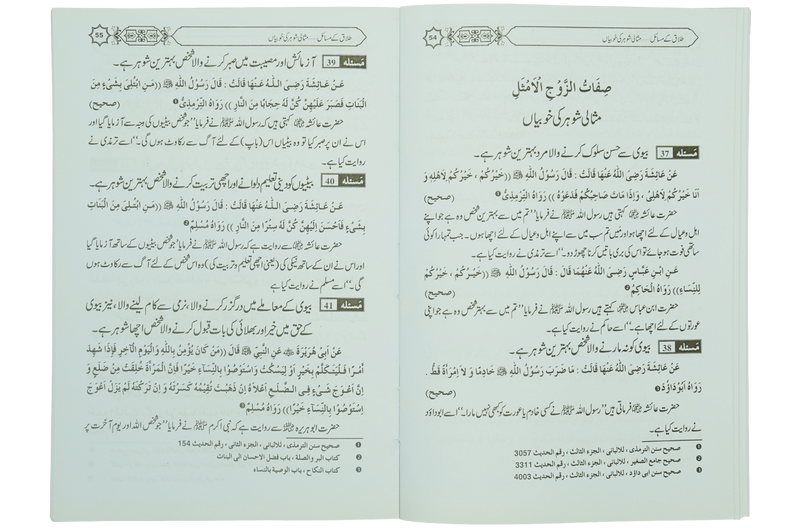 54
طلاق کے مسائل.... مثالی شوہر کی خوبیاں
صِفَاتُ الزَّوْجِ الْاَمْثَلِ
مثالی شوہر کی خوبیاں
مَسئله 37 بیوی سے حسن سلوک کرنے والا مرد بہترین شوہر ہے۔
عَنْ عَائِشَةَ رَضِیَ اللّٰهُ عَنْهَا قَالَتْ : قَالَ رَسُوْلُ اللّٰهِ ﷺ ((خَيْرُكُمْ ، خَيْرُكُمْ لِاَهْلِهٖ وَ
اَنَا خَيْرُكُمْ لِاَهْلِیْ ، وَاِذَا مَاتَ صَاحِبُكُمْ فَدَعُوْهُ )) رَوَاهُ التِّرْمِذِیُّ ❶ (صحیح)
حضرت عائشہ ؓ کہتی ہیں رسول اللہ ﷺ نے فرمایا ”تم میں سے بہترین شخص وہ ہے جو اپنے
اہل و عیال کے لئے اچھا ہو اور میں تم سب میں سے اپنے اہل و عیال کے لئے اچھا ہوں۔ جب تمہارا کوئی
ساتھی فوت ہو جائے تو اس کی بری باتیں کرنا چھوڑ دو۔“ اسے ترمذی نے روایت کیا ہے۔
عَنِ ابْنِ عَبَّاسٍ رَضِیَ اللّٰهُ عَنْهُمَا قَالَ : قَالَ رَسُوْلُ اللّٰهِ ﷺ ((خَيْرُكُمْ ، خَيْرُكُمْ
لِلنِّسَاءِ)) رَوَاهُ الْحَاكِمُ ❷ (صحیح)
حضرت ابن عباس ؓ کہتے ہیں رسول اللہ ﷺ نے فرمایا ”تم میں سے بہتر شخص وہ ہے جو اپنی
عورتوں کے لئے اچھا ہے۔“ اسے حاکم نے روایت کیا ہے۔
مَسئله 38 بیوی کو نہ مارنے والا شخص بہترین شوہر ہے۔
عَنْ عَائِشَةَ رَضِیَ اللّٰهُ عَنْهَا قَالَتْ : مَا ضَرَبَ رَسُوْلُ اللّٰهِ ﷺ خَادِمًا وَ لاَ اِمْرَأَةً قَطُّ .
رَوَاهُ اَبُوْدَاوُدَ ❸ (صحیح)
حضرت عائشہ ؓ فرماتی ہیں ”رسول اللہ ﷺ نے کسی خادم یا عورت کو کبھی نہیں مارا۔“ اسے ابوداؤد
نے روایت کیا ہے۔
❶ صحیح سنن الترمذی ، للالبانی ، الجزء الثالث ، رقم الحدیث 3057
❷ صحیح جامع الصغیر ، للالبانی ، الجزء الثالث ، رقم الحدیث 3311
❸ صحیح سنن ابی داؤد ، للالبانی ، الجزء الثالث ، رقم الحدیث 4003
55
طلاق کے مسائل.... مثالی شوہر کی خوبیاں
مَسئله 39 آزمائش اور مصیبت میں صبر کرنے والا شخص بہترین شوہر ہے۔
عَنْ عَائِشَةَ رَضِیَ اللّٰهُ عَنْهَا قَالَتْ : قَالَ رَسُوْلُ اللّٰهِ ﷺ ((مَنِ ابْتُلِیَ بِشَیْءٍ مِنَ
الْبَنَاتِ فَصَبَرَ عَلَيْهِنَّ كُنَّ لَهٗ حِجَابًا مِنَ النَّارِ )) رَوَاهُ التِّرْمِذِیُّ ❶ (صحیح)
حضرت عائشہ ؓ کہتی ہیں کہ رسول اللہ ﷺ نے فرمایا ”جو شخص بیٹیوں کی وجہ سے آزمایا گیا اور
اس نے ان پر صبر کیا تو وہ بیٹیاں اس (باپ) کے لئے آگ سے رکاوٹ ہوں گی۔“ اسے ترمذی نے
روایت کیا ہے۔
مَسئله 40 بیٹیوں کو دینی تعلیم دلوانے اور اچھی تربیت کرنے والا شخص بہترین شوہر ہے۔
عَنْ عَائِشَةَ رَضِیَ اللّٰهُ عَنْهَا قَالَتْ : قَالَ رَسُوْلُ اللّٰهِ ﷺ ((مَنِ ابْتُلِیَ مِنَ الْبَنَاتِ
بِشَیْءٍ فَاَحْسَنَ اِلَيْهِنَّ كُنَّ لَهٗ سِتْرًا مِنَ النَّارِ )) رَوَاهُ مُسْلِمٌ ❷
حضرت عائشہ ؓ سے روایت ہے کہ رسول اللہ ﷺ نے فرمایا ”جو شخص بیٹیوں کے ساتھ آزمایا گیا
اور اس نے ان کے ساتھ نیکی کی (یعنی اچھی تعلیم و تربیت کی) وہ اس شخص کے لئے آگ سے رکاوٹ ہوں
گی۔“ اسے مسلم نے روایت کیا ہے۔
مَسئله 41 بیوی کے معاملے میں درگزر کرنے والا، نرمی سے کام لینے والا، نیز بیوی
کے حق میں خیر اور بھلائی کی بات قبول کرنے والا شخص اچھا شوہر ہے۔
عَنْ اَبِیْ هُرَيْرَةَ ؓ عَنِ النَّبِیِّ ﷺ قَالَ ((مَنْ كَانَ يُؤْمِنُ بِاللّٰهِ وَالْيَوْمِ الْآخِرِ فَاِذَا شَهِدَ
اَمْرًا فَلْيَتَكَلَّمْ بِخَيْرٍ اَوْ لِيَسْكُتْ وَاسْتَوْصُوْا بِالنِّسَآءِ خَيْرًا فَاِنَّ الْمَرْأَةَ خُلِقَتْ مِنْ ضِلَعٍ وَ
اِنَّ اَعْوَجَ شَیْءٍ فِی الضِّلَعِ اَعْلَاهُ اِنْ ذَهَبْتَ تُقِيْمُهٗ كَسَرْتَهٗ وَ اِنْ تَرَكْتَهٗ لَمْ يَزَلْ اَعْوَجَ
اِسْتَوْصُوْا بِالنِّسَآءِ خَيْرًا)) رَوَاهُ مُسْلِمٌ ❸
حضرت ابوہریرہ ؓ سے روایت ہے کہ نبی اکرم ﷺ نے فرمایا ”جو شخص اللہ اور یوم آخرت پر
❶ صحیح سنن الترمذی ، للالبانی ، الجزء الثانی ، رقم الحدیث 154
❷ کتاب البر والصلة ، باب فضل الاحسان الی البنات
❸ کتاب النکاح ، باب الوصیة بالنساء